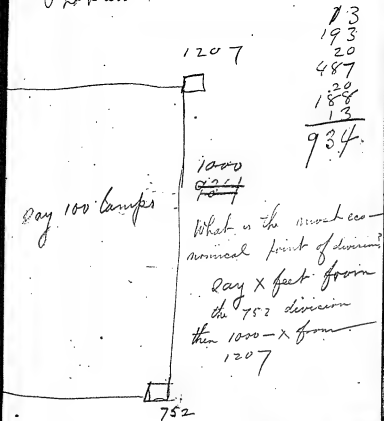 13
193
20
487
20
188
13
934
1207
1000
Say 100 Lamps
What is the most eco-
nomical point of division?
Say X feet from
the 752 division
then 1000 - X from
1207
752